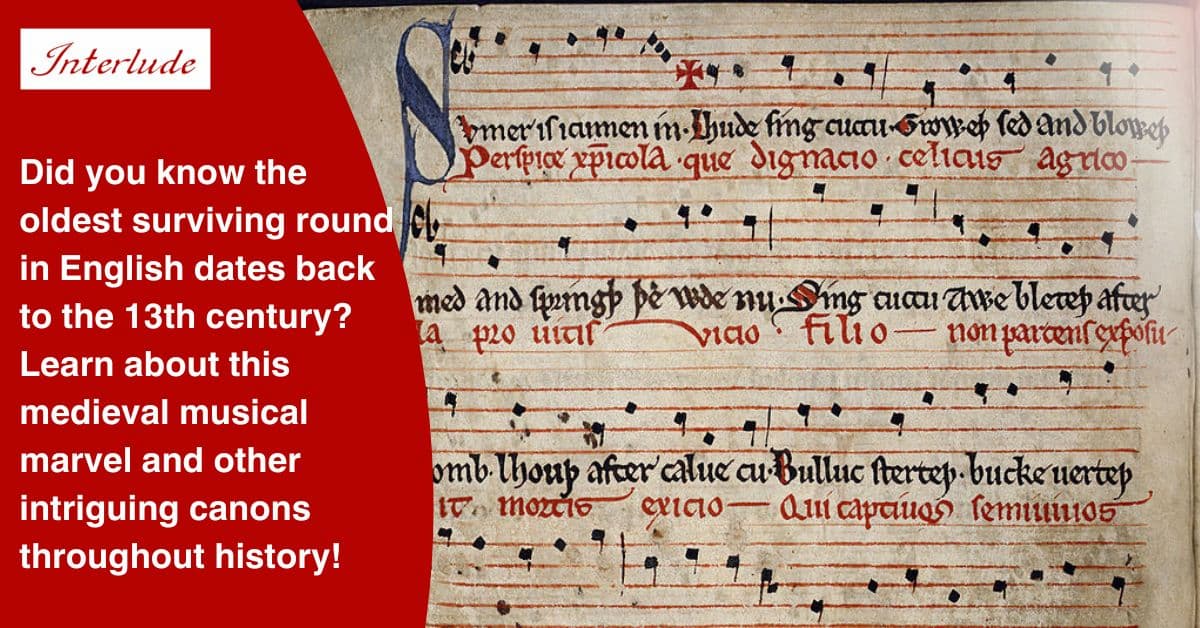 Interlude
Did you know the
oldest surviving round
in English dates back
to the 13th century?
Learn about this
medieval musical
marvel and other
intriguing canons
throughout history!
Sumer is icumen in· Lhude sing cuccu· Groweþ sed and bloweþ
Perspice xp̅icola · que dignacio · celicus agrico
med and springþ þe wde nu· Sing cuccu Awe bleteþ after
la pro uitis vicio · filio non parcens exposu-
omb· lhouþ after calue cu· Bulluc sterteþ· bucke uerteþ
it mortis exicio Qui captiuos semiuiuos